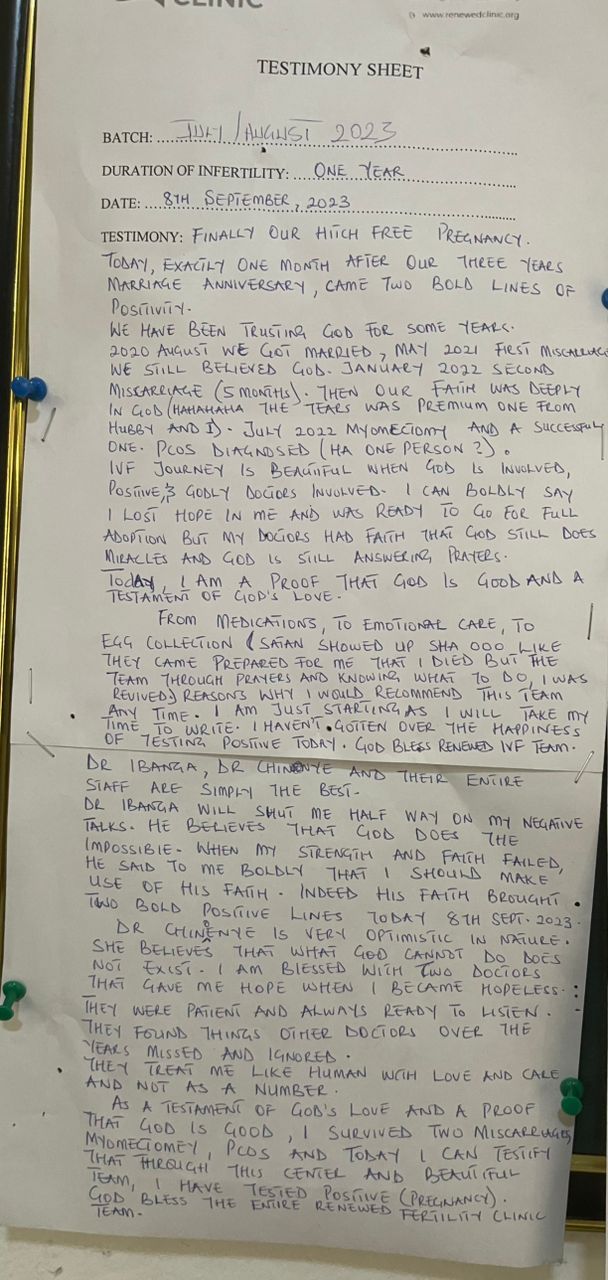 CLINIC
www.renewedclinic.org
TESTIMONY SHEET
BATCH: JULY/AUGUST 2023
DURATION OF INFERTILITY: ONE YEAR
DATE: 8TH SEPTEMBER, 2023
TESTIMONY: FINALLY OUR HITCH FREE PREGNANCY.
TODAY, EXACTLY ONE MONTH AFTER OUR THREE YEARS
MARRIAGE ANNIVERSARY, CAME TWO BOLD LINES OF
POSITIVITY.
WE HAVE BEEN TRUSTING GOD FOR SOME YEARS.
2020 AUGUST WE GOT MARRIED, MAY 2021 FIRST MISCARRIAGE
WE STILL BELIEVED GOD. JANUARY 2022 SECOND
MISCARRIAGE (5 MONTHS). THEN OUR FAITH WAS DEEPLY
IN GOD (HAHAHAHA THE TEARS WAS PREMIUM ONE FROM
HUBBY AND I). JULY 2022 MYOMECTOMY AND A SUCCESSFUL
ONE. PCOS DIAGNOSED (HA ONE PERSON?).
IVF JOURNEY IS BEAUTIFUL WHEN GOD IS INVOLVED,
POSITIVE & GODLY DOCTORS INVOLVED. I CAN BOLDLY SAY
I LOST HOPE IN ME AND WAS READY TO GO FOR FULL
ADOPTION BUT MY DOCTORS HAD FAITH THAT GOD STILL DOES
MIRACLES AND GOD IS STILL ANSWERING PRAYERS.
TODAY, I AM A PROOF THAT GOD IS GOOD AND A
TESTAMENT OF GOD'S LOVE.
FROM MEDICATIONS, TO EMOTIONAL CARE, TO
EGG COLLECTION (SATAN SHOWED UP SHA OOO LIKE
THEY CAME PREPARED FOR ME THAT I DIED BUT THE
TEAM THROUGH PRAYERS AND KNOWING WHAT TO DO, I WAS
REVIVED) REASONS WHY I WOULD RECOMMEND THIS TEAM
ANY TIME. I AM JUST STARTING AS I WILL TAKE MY
TIME TO WRITE. I HAVEN'T GOTTEN OVER THE HAPPINESS
OF TESTING POSITIVE TODAY. GOD BLESS RENEWED IVF TEAM.
DR IBANGA, DR CHINENYE AND THEIR ENTIRE
STAFF ARE SIMPLY THE BEST.
DR IBANGA WILL SHUT ME HALF WAY ON MY NEGATIVE
TALKS. HE BELIEVES THAT GOD DOES THE
IMPOSSIBLE. WHEN MY STRENGTH AND FAITH FAILED,
HE SAID TO ME BOLDLY THAT I SHOULD MAKE
USE OF HIS FAITH. INDEED HIS FAITH BROUGHT
TWO BOLD POSITIVE LINES TODAY 8TH SEPT. 2023.
DR CHINENYE IS VERY OPTIMISTIC IN NATURE.
SHE BELIEVES THAT WHAT GOD CANNOT DO DOES
NOT EXIST. I AM BLESSED WITH TWO DOCTORS
THAT GAVE ME HOPE WHEN I BECAME HOPELESS.
THEY WERE PATIENT AND ALWAYS READY TO LISTEN.
THEY FOUND THINGS OTHER DOCTORS OVER THE
YEARS MISSED AND IGNORED.
THEY TREAT ME LIKE HUMAN WITH LOVE AND CARE
AND NOT AS A NUMBER.
AS A TESTAMENT OF GOD'S LOVE AND A PROOF
THAT GOD IS GOOD, I SURVIVED TWO MISCARRIAGES,
MYOMECTOMEY, PCOS AND TODAY I CAN TESTIFY
THAT THROUGH THIS CENTER AND BEAUTIFUL
TEAM, I HAVE TESTED POSITIVE (PREGNANCY).
GOD BLESS THE ENTIRE RENEWED FERTILITY CLINIC
TEAM.